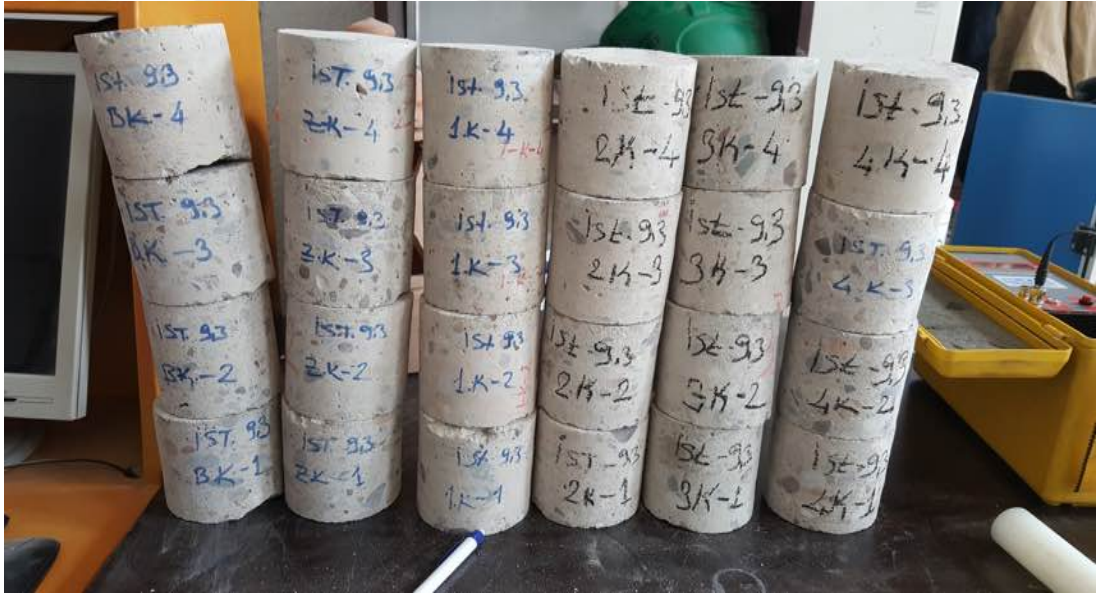 İST. 9,3
BK-4
İST. 9,3
BK-3
İST. 9,3
BK-2
İST. 9,3
BK-1
İST. 9,3
ZK-4
İST. 9,3
Z.K-3
İST. 9,3
ZK-2
İST. 9,3
ZK-1
İst. 9,3
1K-4
1-K-4
İst. 9,3
1.K-3
İst 9,3
1.K-2
İst 9,3
1K-1
İst-9,3
2.K-4
İst-9,3
2K-3
İst-9,3
2K-2
İST-9,3
2K-1
İst-9,3
3K-4
İst-9,3
3K-3
İst-9,3
3K-2
İst-9,3
3K-1
İst-9,3
4K-4
İST. 9,3
4.K-3
İst-9,3
4K-2
İst-9,3
4K-1